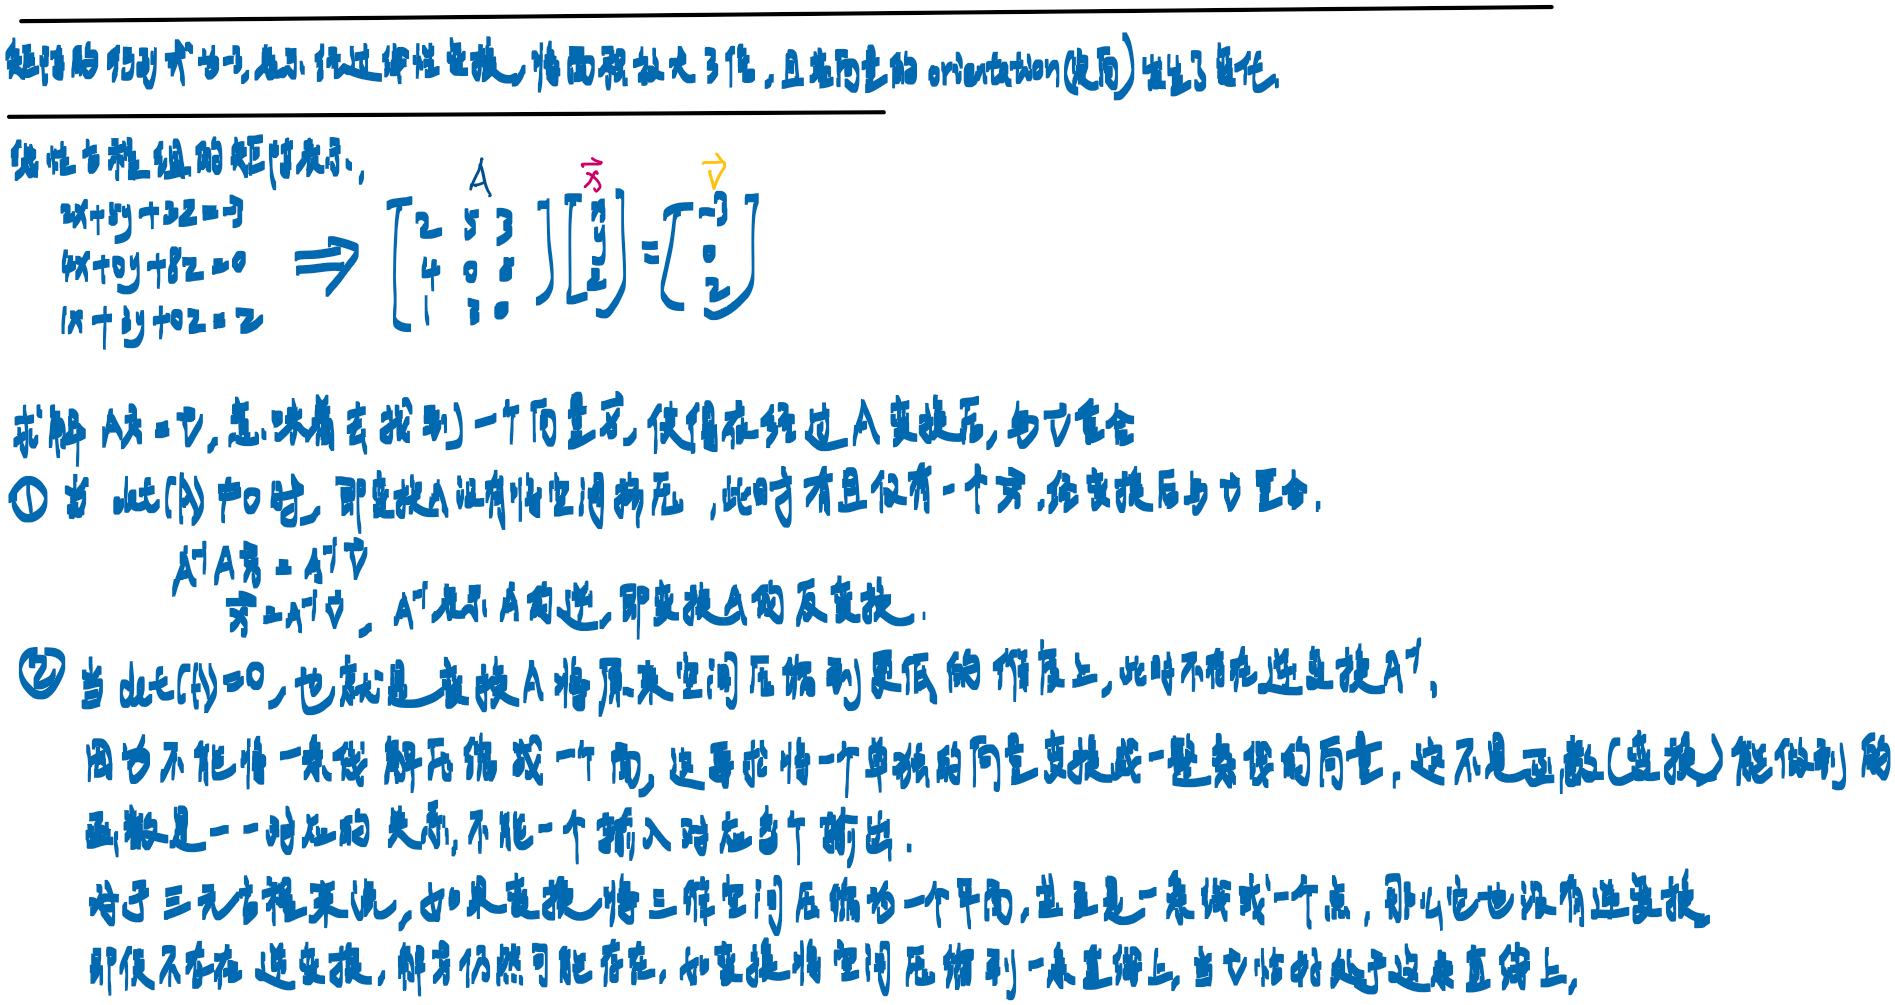 矩阵的行列式为-3,表示经过线性变换,将面积放大3倍,且基向量的orientation(定向)发生了变化.
线性方程组的矩阵表示,
A x⃗ v⃗
2x+5y+3z=-3
4x+0y+8z=0 ⇒ [2 5 3; 4 0 8; 1 3 0] [x; y; z] = [-3; 0; 2]
1x+3y+0z=2
求解 Ax⃗=v⃗, 意味着去找到一个向量x⃗, 使得在经过A变换后, 与v⃗重合
① 当 det(A)≠0时, 即变换A没有将空间挤压, 此时有且仅有一个x⃗, 经变换后与v⃗重合.
A⁻¹Ax⃗=A⁻¹v⃗
x⃗=A⁻¹v⃗, A⁻¹表示A的逆, 即变换A的反变换.
② 当 det(A)=0, 也就是变换A将原来空间压缩到更低的维度上, 此时不存在逆变换A⁻¹.
因为不能将一条线解压缩成一个面, 这要求将一个单独的向量变换成一整条线的向量. 这不是函数(变换)能做到的
函数是一一对应的关系, 不能一个输入对应多个输出.
对于三元方程来说, 如果变换将三维空间压缩为一个平面, 甚至是一条线或一个点, 那么它也没有逆变换
即使不存在逆变换, 解x⃗仍然可能存在, 如变换将空间压缩到一条直线上, 当v⃗恰好处于这条直线上,